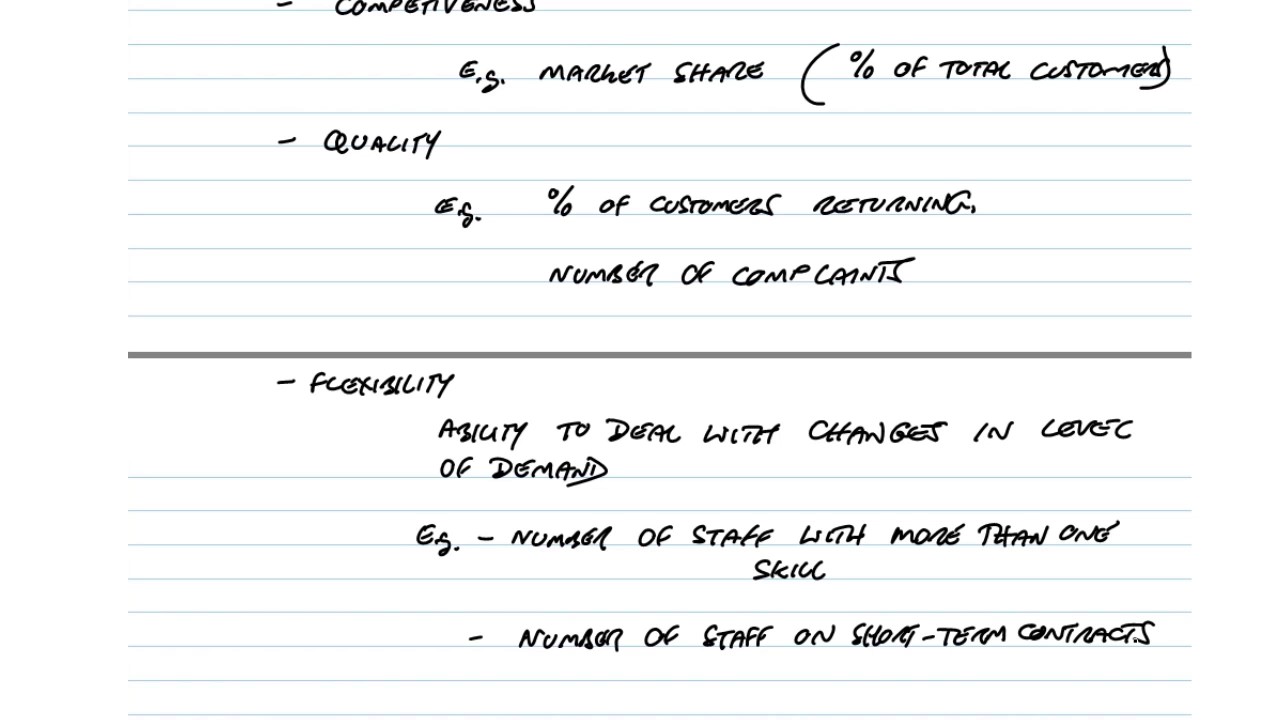 - COMPETIVENESS
E.g. MARKET SHARE (% OF TOTAL CUSTOMERS)
- QUALITY
E.g. % OF CUSTOMERS RETURNING.
NUMBER OF COMPLAINTS
- FLEXIBILITY
ABILITY TO DEAL WITH CHANGES IN LEVEL
OF DEMAND
E.g. - NUMBER OF STAFF WITH MORE THAN ONE
SKILL
- NUMBER OF STAFF ON SHORT-TERM CONTRACTS